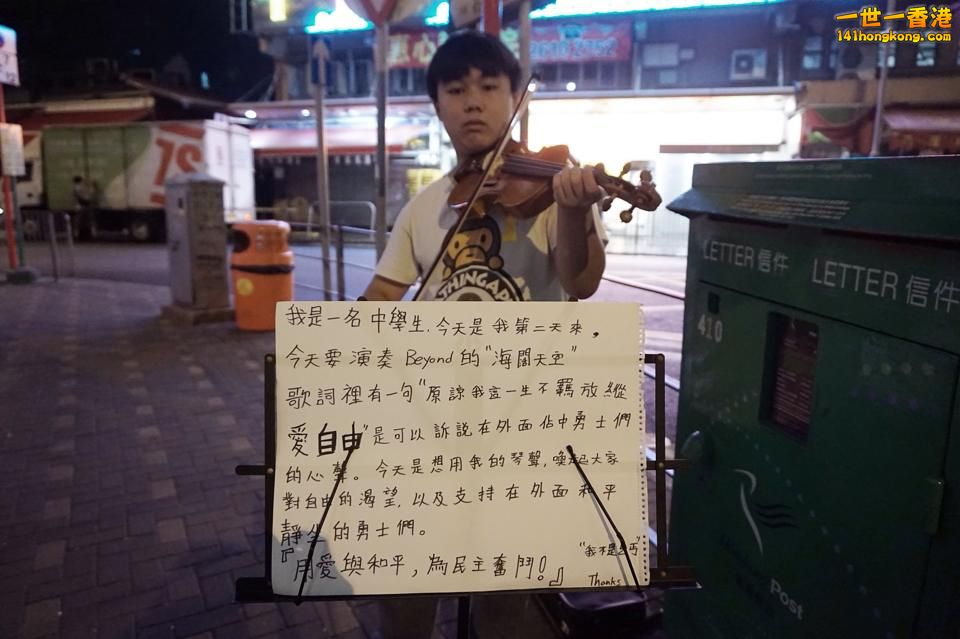 一世一香港
141hongkong.com
LETTER 信件
LETTER 信件
410
THINGAP
Post
我是一名中學生.今天是我第二天來,
今天要演奏 Beyond 的 "海闊天空"
歌詞裡有一句"原諒我這一生不羈放縱
愛自由"是可以訴說在外面佔中勇士們
的心聲。今天是想用我的琴聲,喚起大家
對自由的渴望,以及支持在外面和平
靜坐的勇士們。
『用愛與和平,為民主奮鬥!』
"我不是乞丐"
Thanks